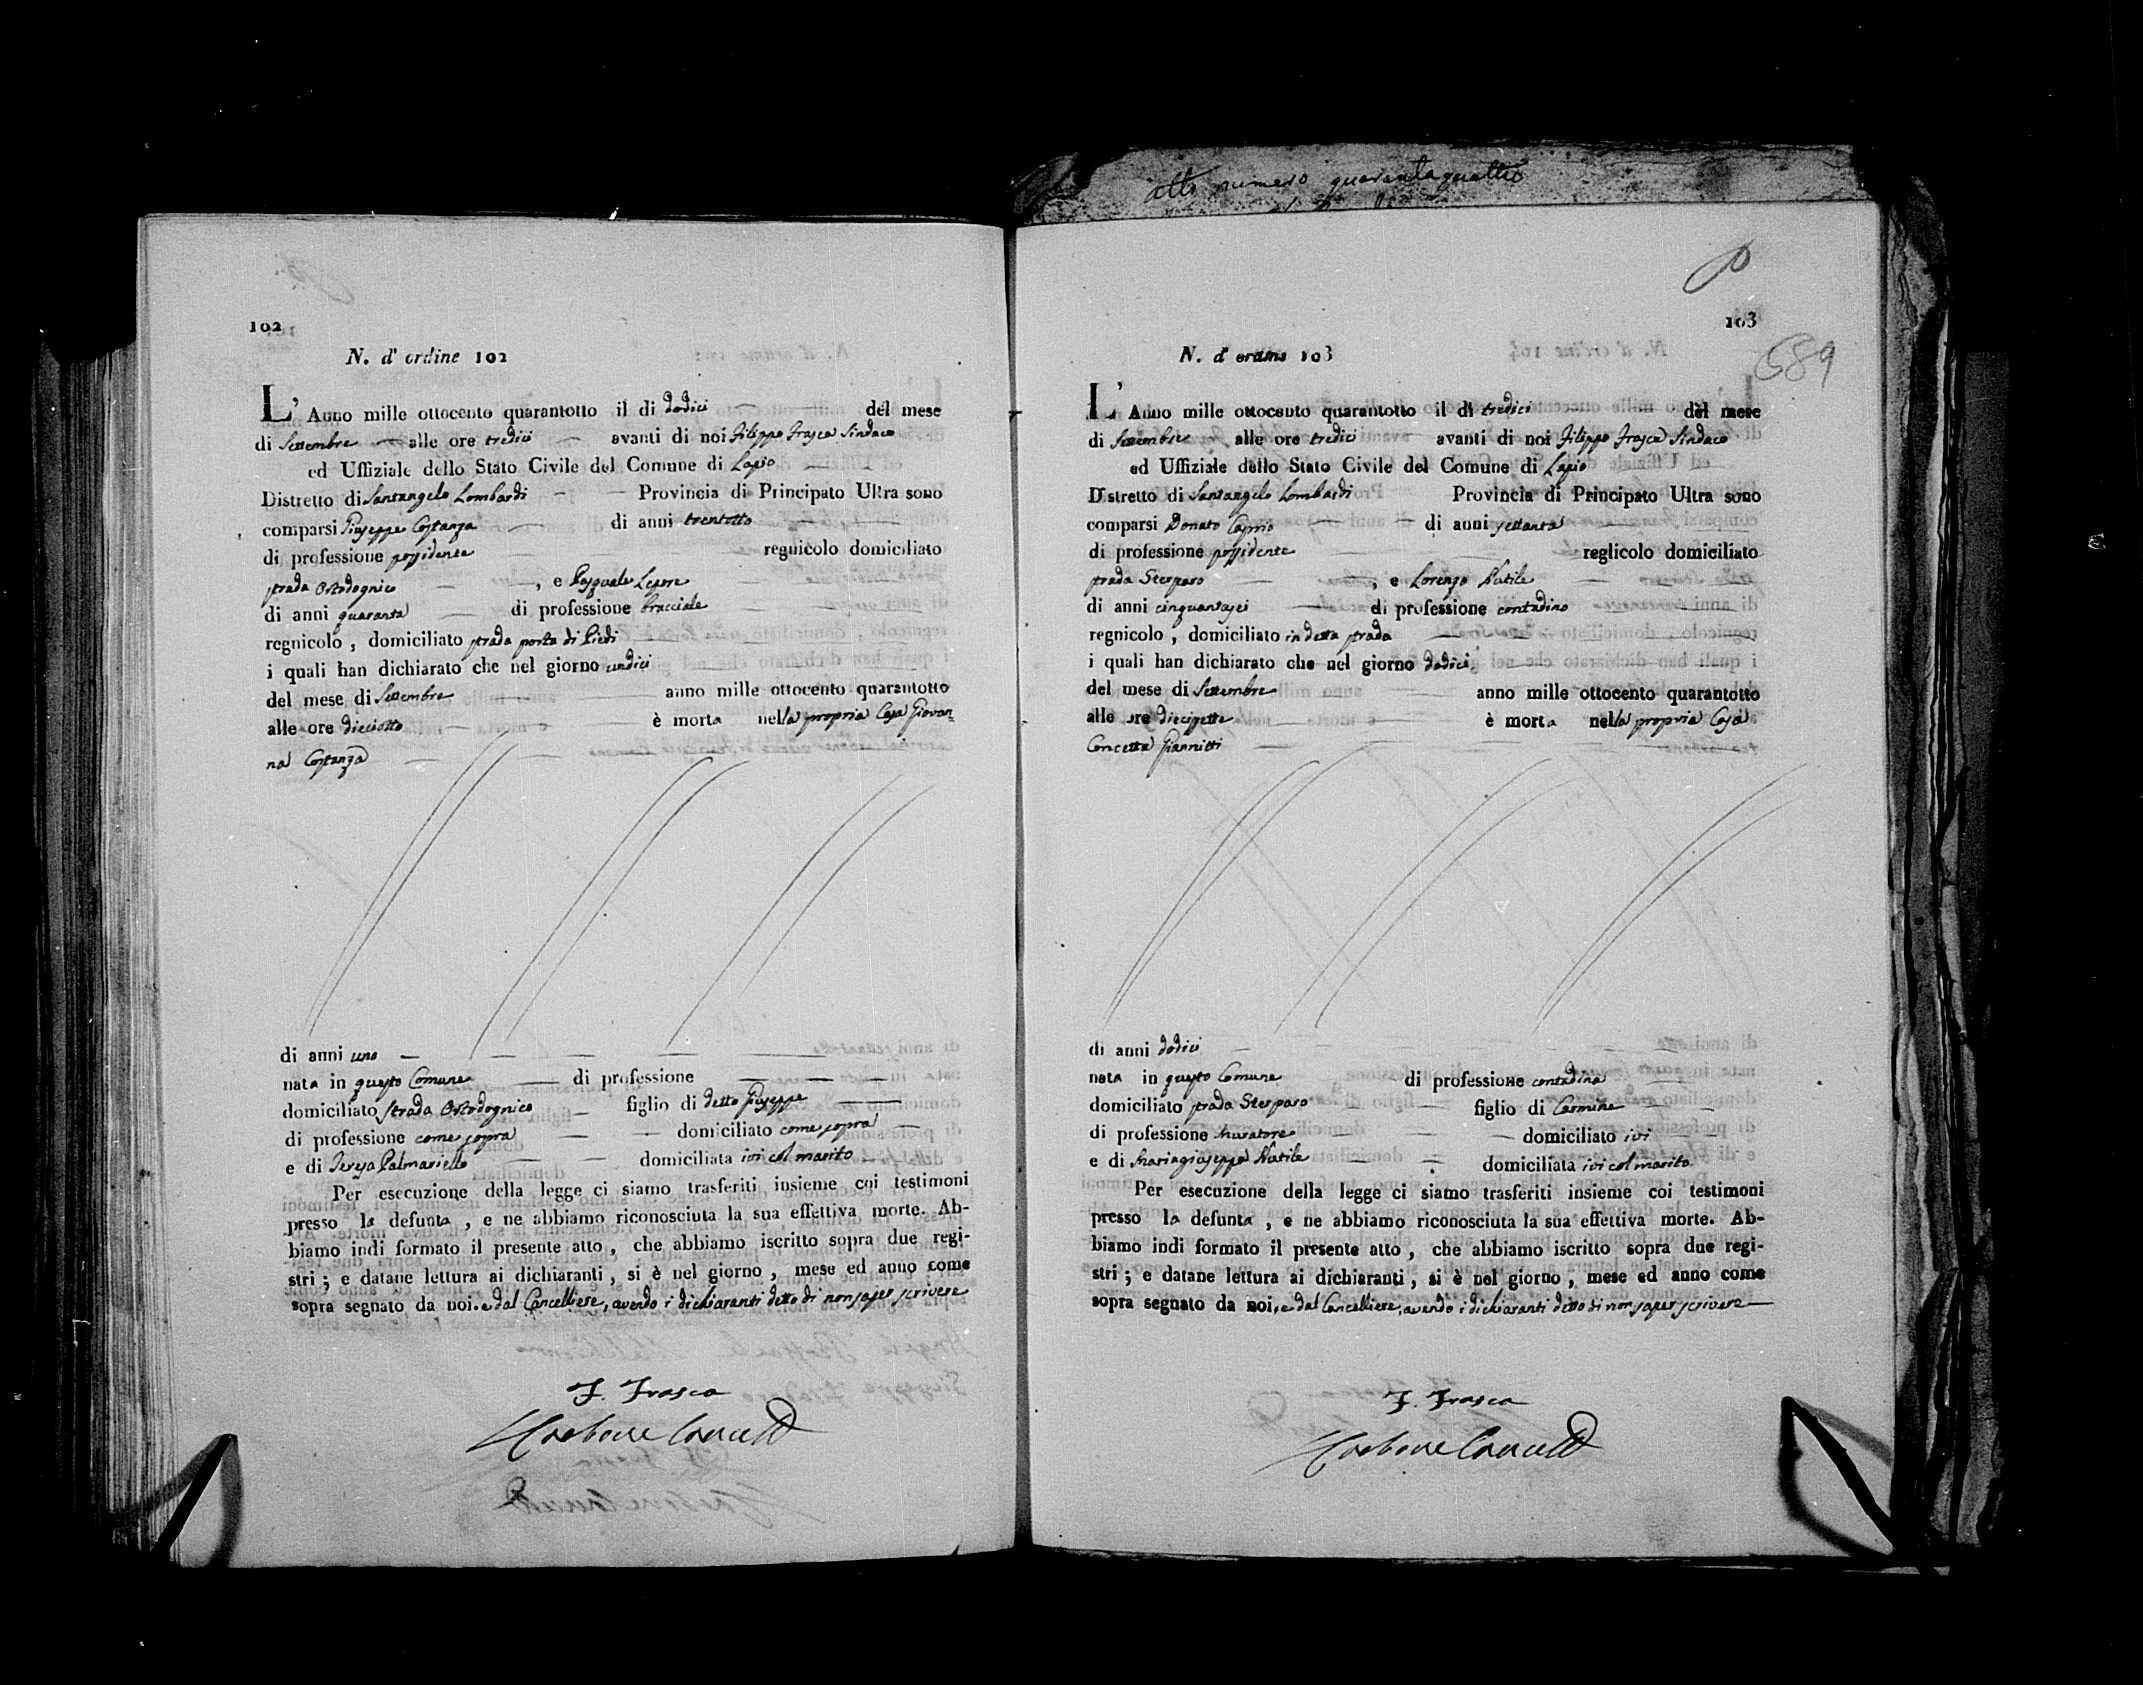 atto numero quarantaquattro
102
N. d' ordine 102
L' Anno mille ottocento quarantotto il di dodici del mese
di Settembre alle ore tredici avanti di noi Filippo Frasca Sindaco
ed Uffiziale dello Stato Civile del Comune di Lapio
Distretto di Santangelo Lombardi Provincia di Principato Ultra sono
comparsi Giuseppe Costanza di anni trentotto
di professione possidente regnicolo domiciliato
strada Ortodognico , e Pasquale Lepore
di anni quaranta di professione bracciale
regnicolo , domiciliato strada porta di Piedi
i quali han dichiarato che nel giorno undici
del mese di Settembre anno mille ottocento quarantotto
alle ore dieciotto è morta nella propria Casa Giovan=
na Costanza
di anni uno
nata in questo Comune di professione
domiciliato strada Ortodognico figlio di detto Giuseppe
di professione come sopra domiciliato come sopra
e di Teresa Palmariello domiciliata ivi col marito
Per esecuzione della legge ci siamo trasferiti insieme coi testimoni
presso la defunta , e ne abbiamo riconosciuta la sua effettiva morte. Ab-
biamo indi formato il presente atto , che abbiamo iscritto sopra due regi-
stri ; e datane lettura ai dichiaranti , si è nel giorno , mese ed anno come
sopra segnato da noi. e dal Cancelliere, avendo i dichiaranti detto di non saper scrivere
F. Frasca
103
689
N. d' ordine 103
L' Anno mille ottocento quarantotto il di tredici del mese
di Settembre alle ore tredici avanti di noi Filippo Frasca Sindaco
ed Uffiziale dello Stato Civile del Comune di Lapio
Distretto di Santangelo Lombardi Provincia di Principato Ultra sono
comparsi Donato Caprio di anni settanta
di professione possidente reglicolo domiciliato
strada Sterparo , e Lorenzo Nutile
di anni cinquantasei di professione contadino
regnicolo , domiciliato in detta strada
i quali han dichiarato che nel giorno dodici
del mese di Settembre anno mille ottocento quarantotto
alle ore diecisette è morta nella propria Casa
Concetta Giannitti
di anni dodici
nata in questo Comune di professione contadina
domiciliato strada Sterparo figlio di Carmine
di professione muratore domiciliato ivi
e di Mariagiuseppa Nutile domiciliata ivi col marito
Per esecuzione della legge ci siamo trasferiti insieme coi testimoni
presso la defunta , e ne abbiamo riconosciuta la sua effettiva morte. Ab-
biamo indi formato il presente atto , che abbiamo iscritto sopra due regi-
stri ; e datane lettura ai dichiaranti , si è nel giorno , mese ed anno come
sopra segnato da noi. e dal Cancelliere, avendo i dichiaranti detto di non saper scrivere
F. Frasca